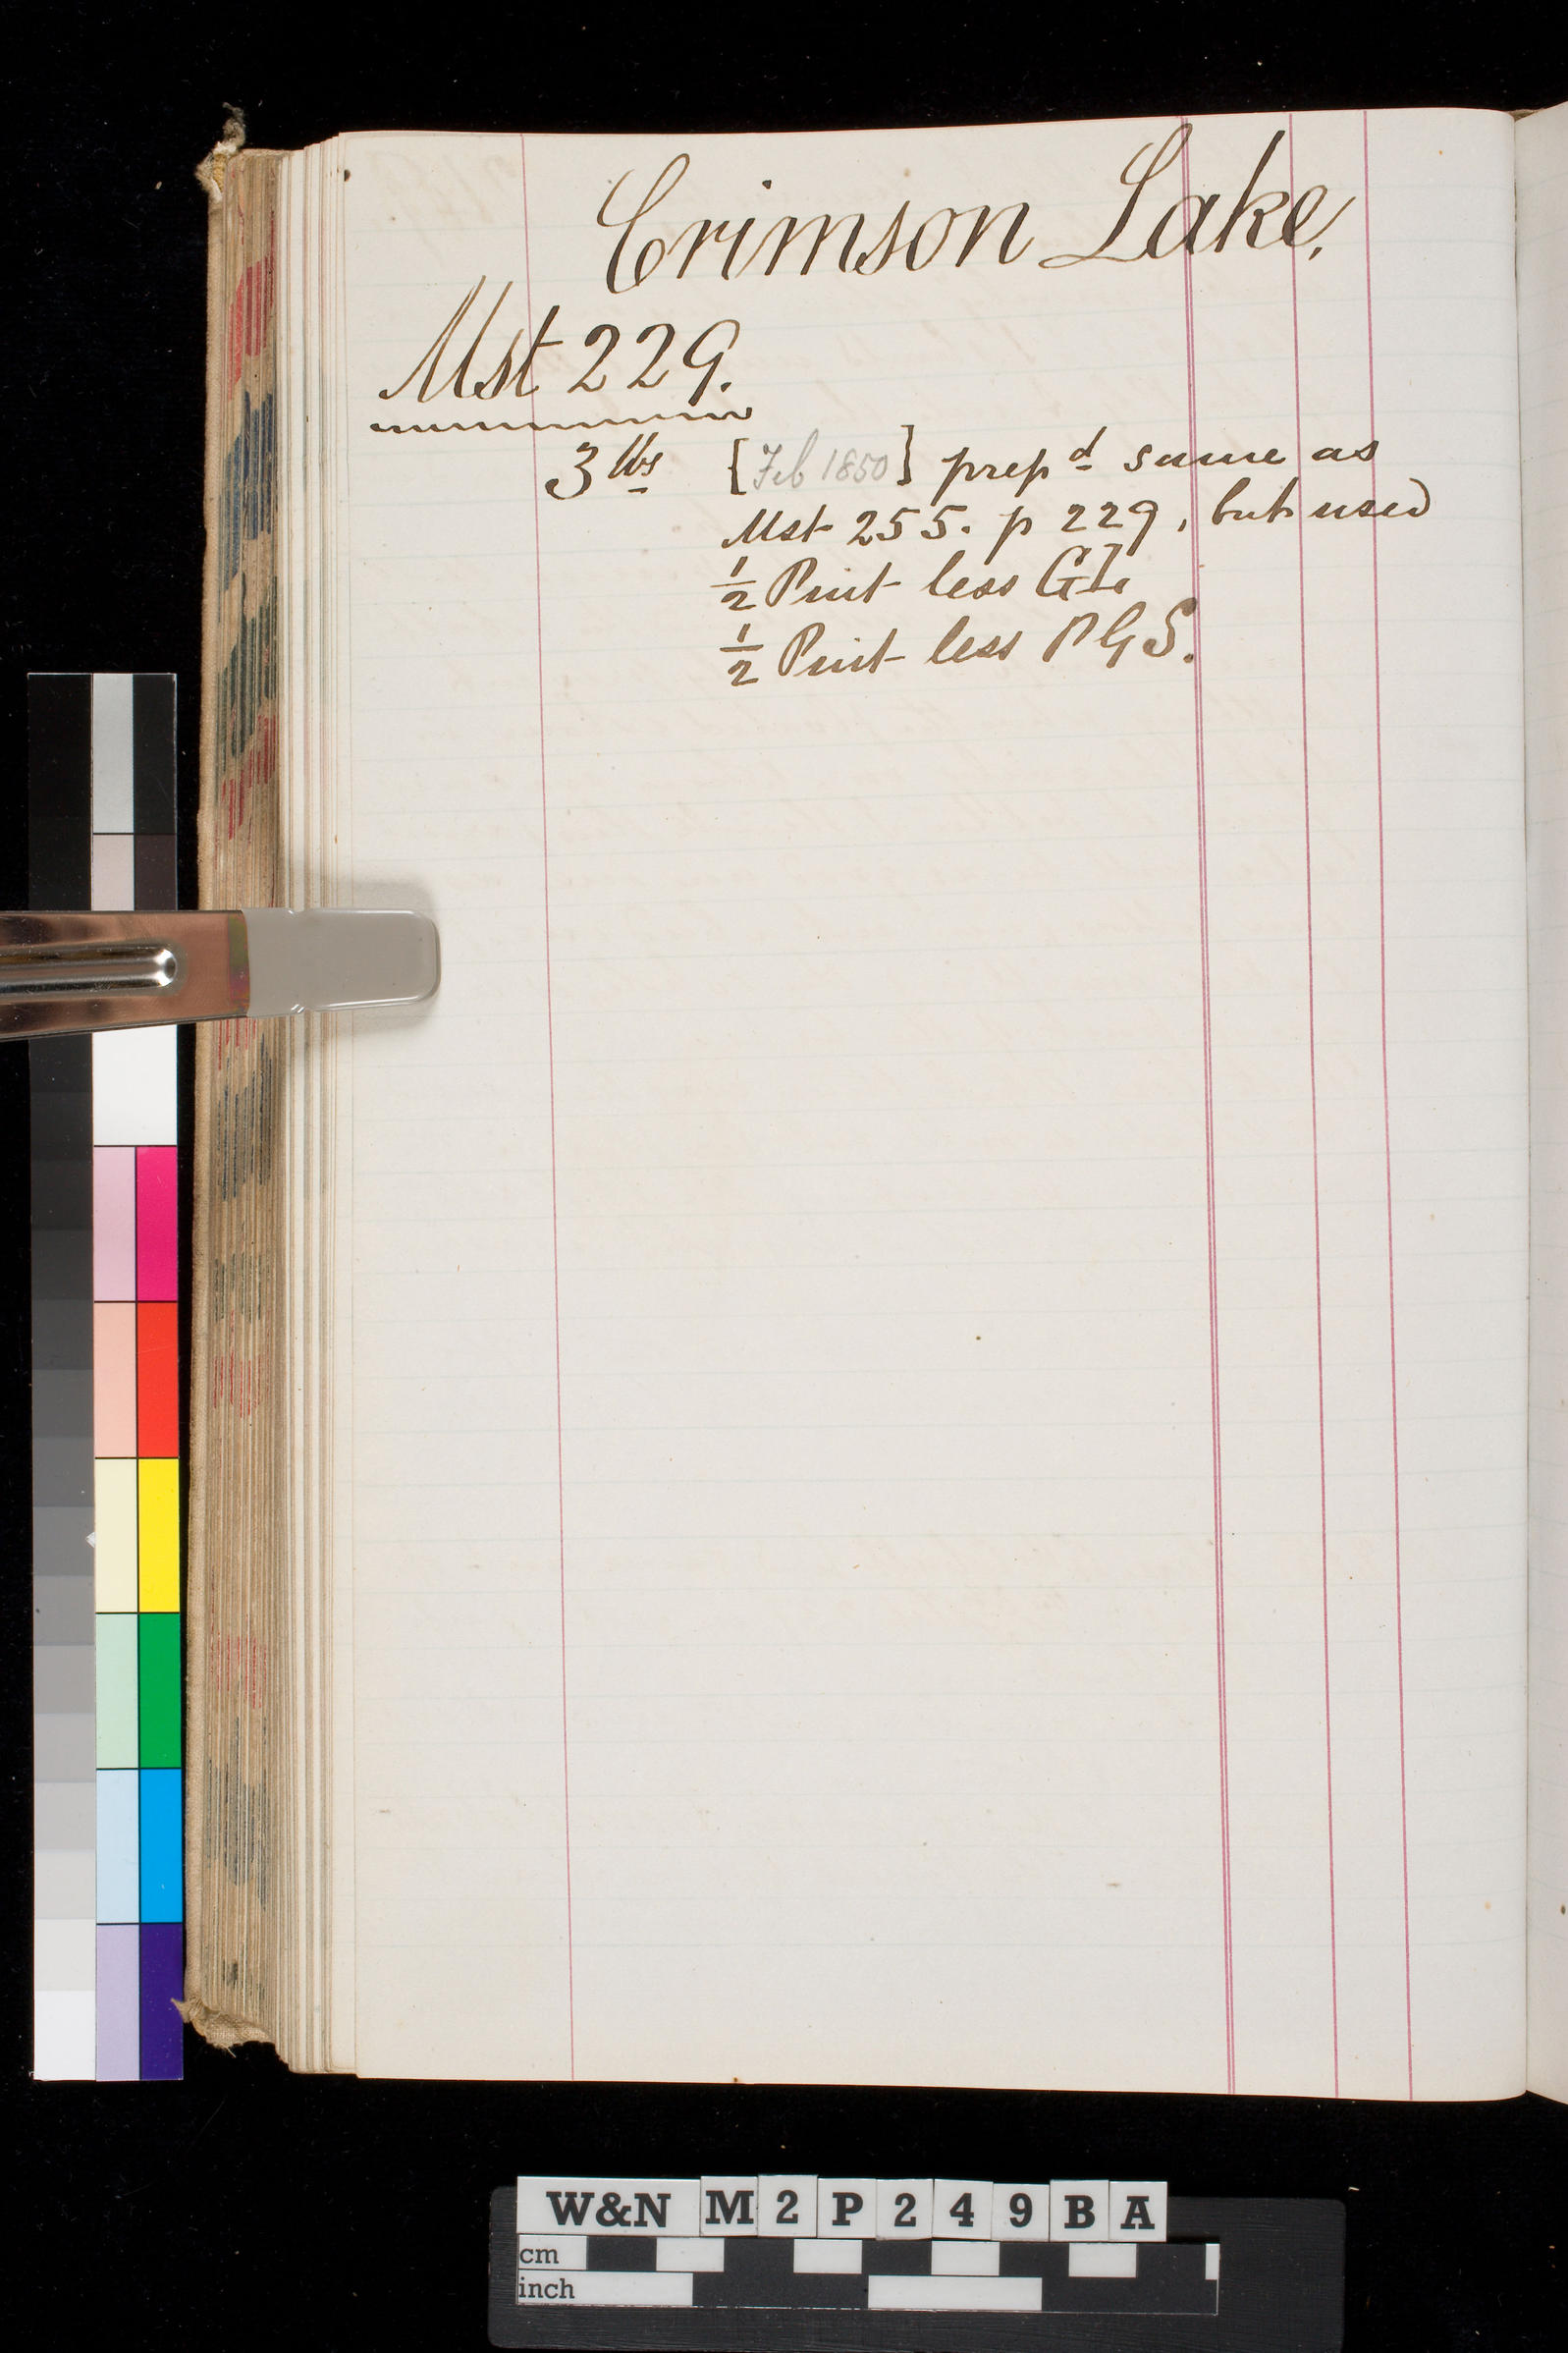 Crimson Lake,
Mst 229.
3 lbs [Feb 1850] prepd same as
Mst 255. p 229, but used
½ Pint less GL
½ Pint less PGS.
W&N M2P249BA
cm
inch